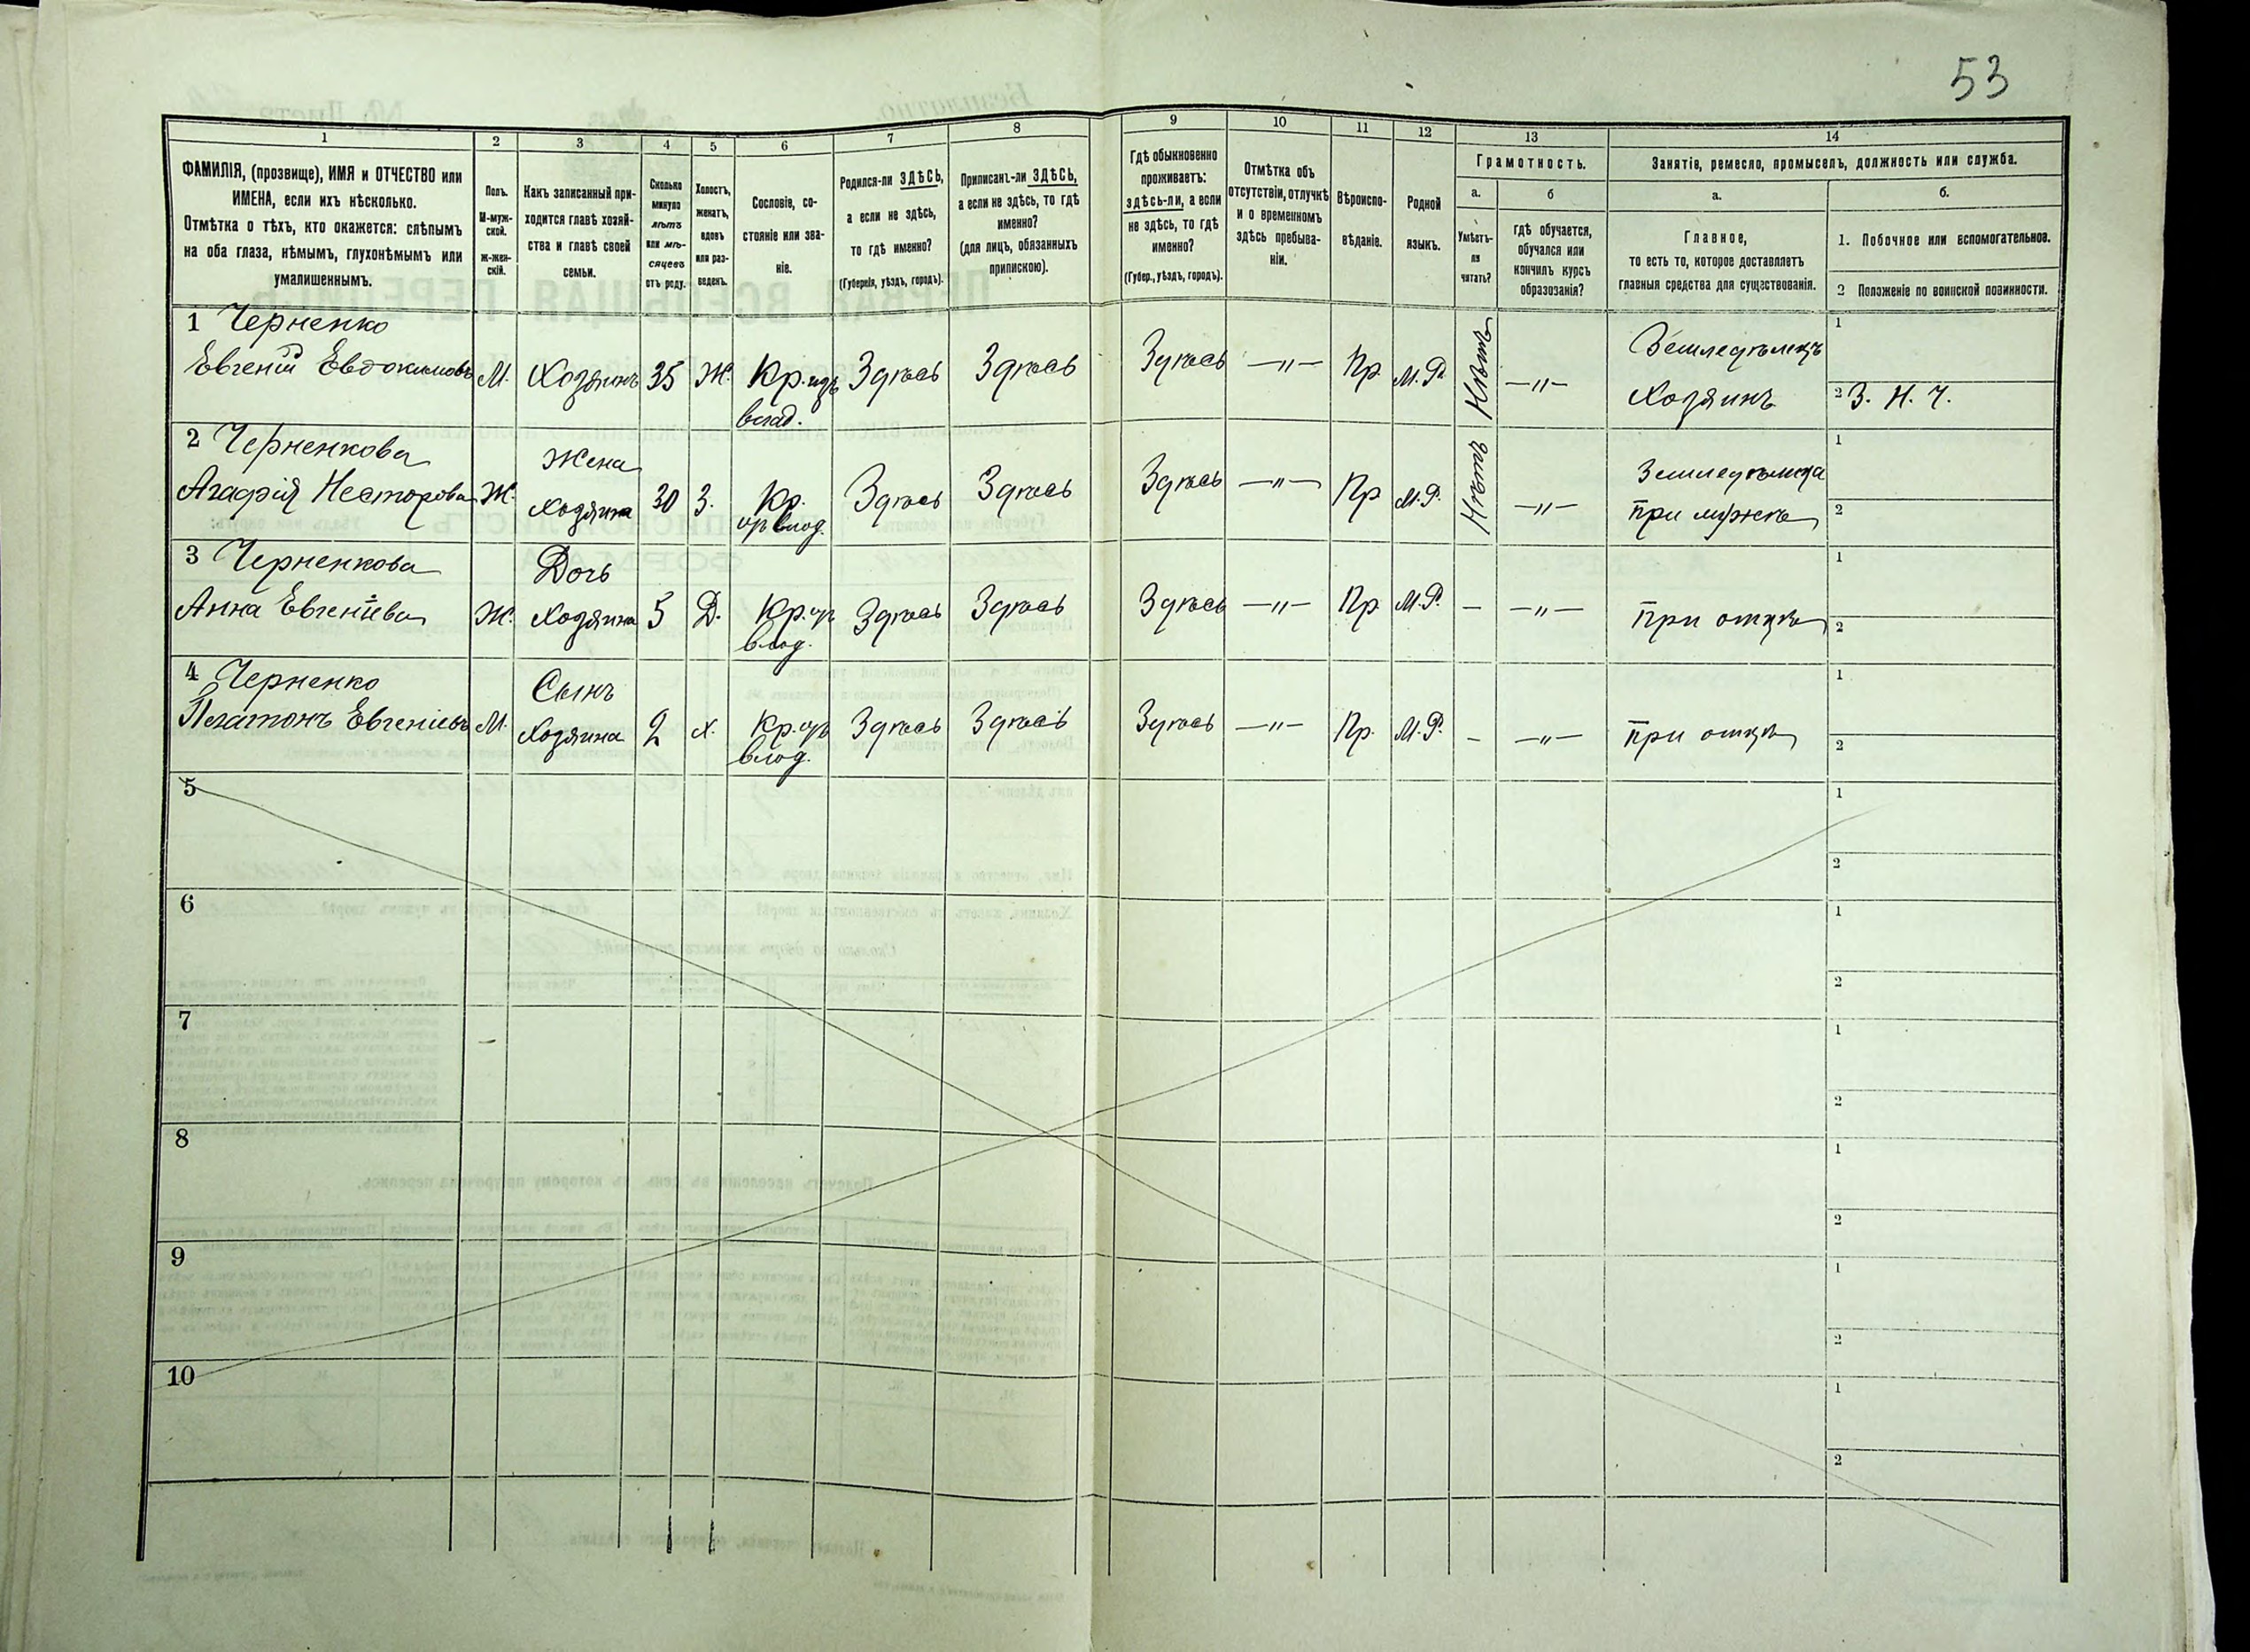 53
1
2
3
4
5
6
7
8
9
10
11
12
13
14
ФАМИЛІЯ, (прозвище), ИМЯ и ОТЧЕСТВО или
ИМЕНА, если ихъ нѣсколько.
Отмѣтка о тѣхъ, кто окажется: слѣпымъ
на оба глаза, нѣмымъ, глухонѣмымъ или
умалишеннымъ.
Полъ.
М-муж-
ской.
ж-жен-
скій.
Какъ записанный при-
ходится главѣ хозяй-
ства и главѣ своей
семьи.
Сколько
минуло
лѣтъ
или мѣ-
сяцевъ
отъ роду.
Холостъ,
женатъ,
вдовъ
или раз-
веденъ.
Сословіе, со-
стояніе или зва-
ніе.
Родился-ли ЗДѢСЬ,
а если не здѣсь,
то гдѣ именно?
(Губернія, уѣздъ, городъ).
Приписанъ-ли ЗДѢСЬ,
а если не здѣсь, то гдѣ
именно?
(для лицъ, обязанныхъ
припискою).
Гдѣ обыкновенно
проживаетъ:
здѣсь-ли, а если
не здѣсь, то гдѣ
именно?
(Губер., уѣздъ, городъ).
Отмѣтка объ
отсутствіи, отлучкѣ
и о временномъ
здѣсь пребыва-
ніи.
Вѣроиспо-
вѣданіе.
Родной
языкъ.
Грамотность.
а.
Умѣетъ-
ли
читать?
б
гдѣ обучается,
обучался или
кончилъ курсъ
образованія?
Занятіе, ремесло, промыселъ, должность или служба.
а.
Главное,
то есть то, которое доставляетъ
главныя средства для существованія.
б.
1. Побочное или вспомогательное.
2 Положеніе по воинской повинности.
1 Черненко
Евгеній Евдокимовъ М. Хозяинъ 35 Ж. Кр. изъ Здѣсь Здѣсь Здѣсь —„— Пр. М.Р. Нѣтъ —„— Земледѣлецъ 1
влад. Хозяинъ 2 З. Н. Ч.
2 Черненкова Жена 1
Агафія Несторова Ж. хозяина 30 З. Кр. Здѣсь Здѣсь Здѣсь —„— Пр М.Р. Нѣтъ —„— Земледѣлица
влад. при мужѣ 2
3 Черненкова Дочь 1
Анна Евгеніева Ж. Хозяина 5 Д. Кр. Здѣсь Здѣсь Здѣсь —„— Пр. М.Р. — —„— при отцѣ 2
влад.
4 Черненко Сынъ 1
Платонъ Евгеніевъ М. Хозяина 2 х. Кр. Здѣсь Здѣсь Здѣсь —„— Пр. М.Р. — —„— при отцѣ 2
влад.
5 1
2
6 1
2
7 1
2
8 1
2
9 1
2
10 1
2